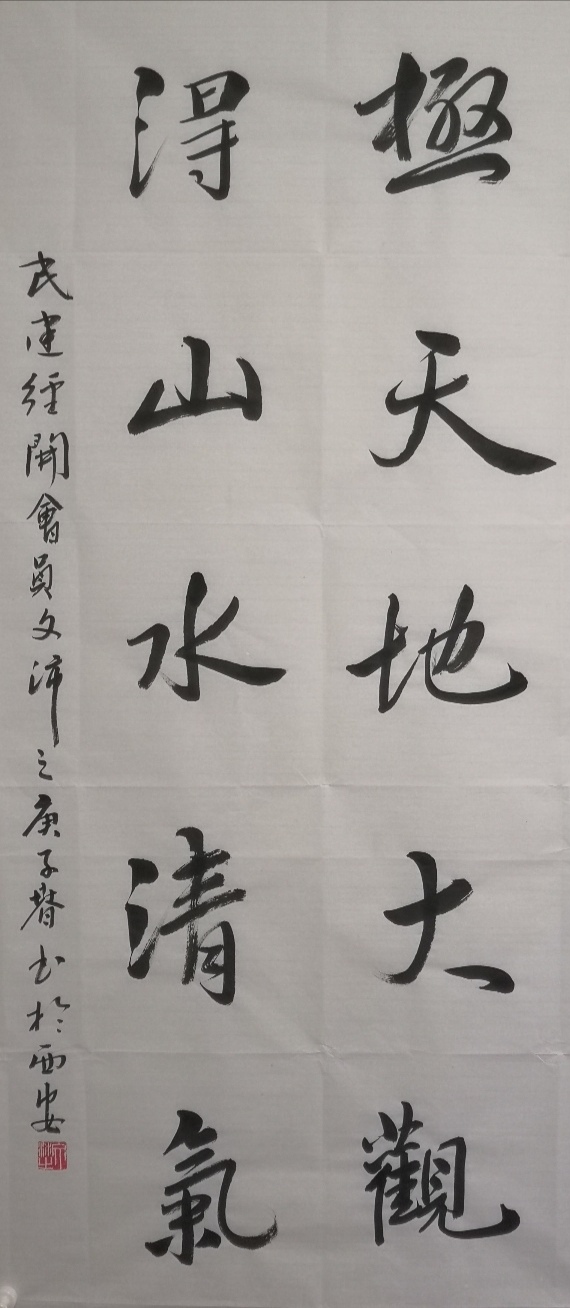 極天地大觀
得山水清氣
民建經開會員文沛之庚子春书於西安